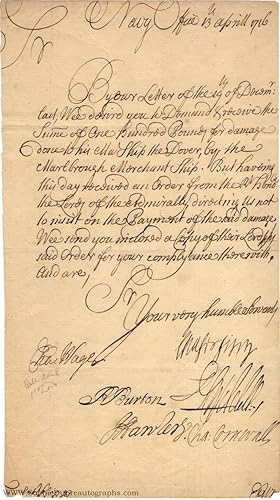 Navy Office 13th Aprill 1716
Sr
By our Letter of the 19th of Decemr
last, Wee desired you to Demand & receive the
Sume of One Hundred Pounds for damage
done to his Mats Ship the Dover, by the
Marlbrough Merchant Ship. But having
this day received an Order from the Rt Honble
the Lords of the Admiralty directing Us not
to insist on the Payment of the said damage
Wee send you inclosed a Copy of their Lordpps
said Order for your complyance therewith,
And are,
Sr
Your very humble Servants
Wager
R Burton
Cha: Cornwall